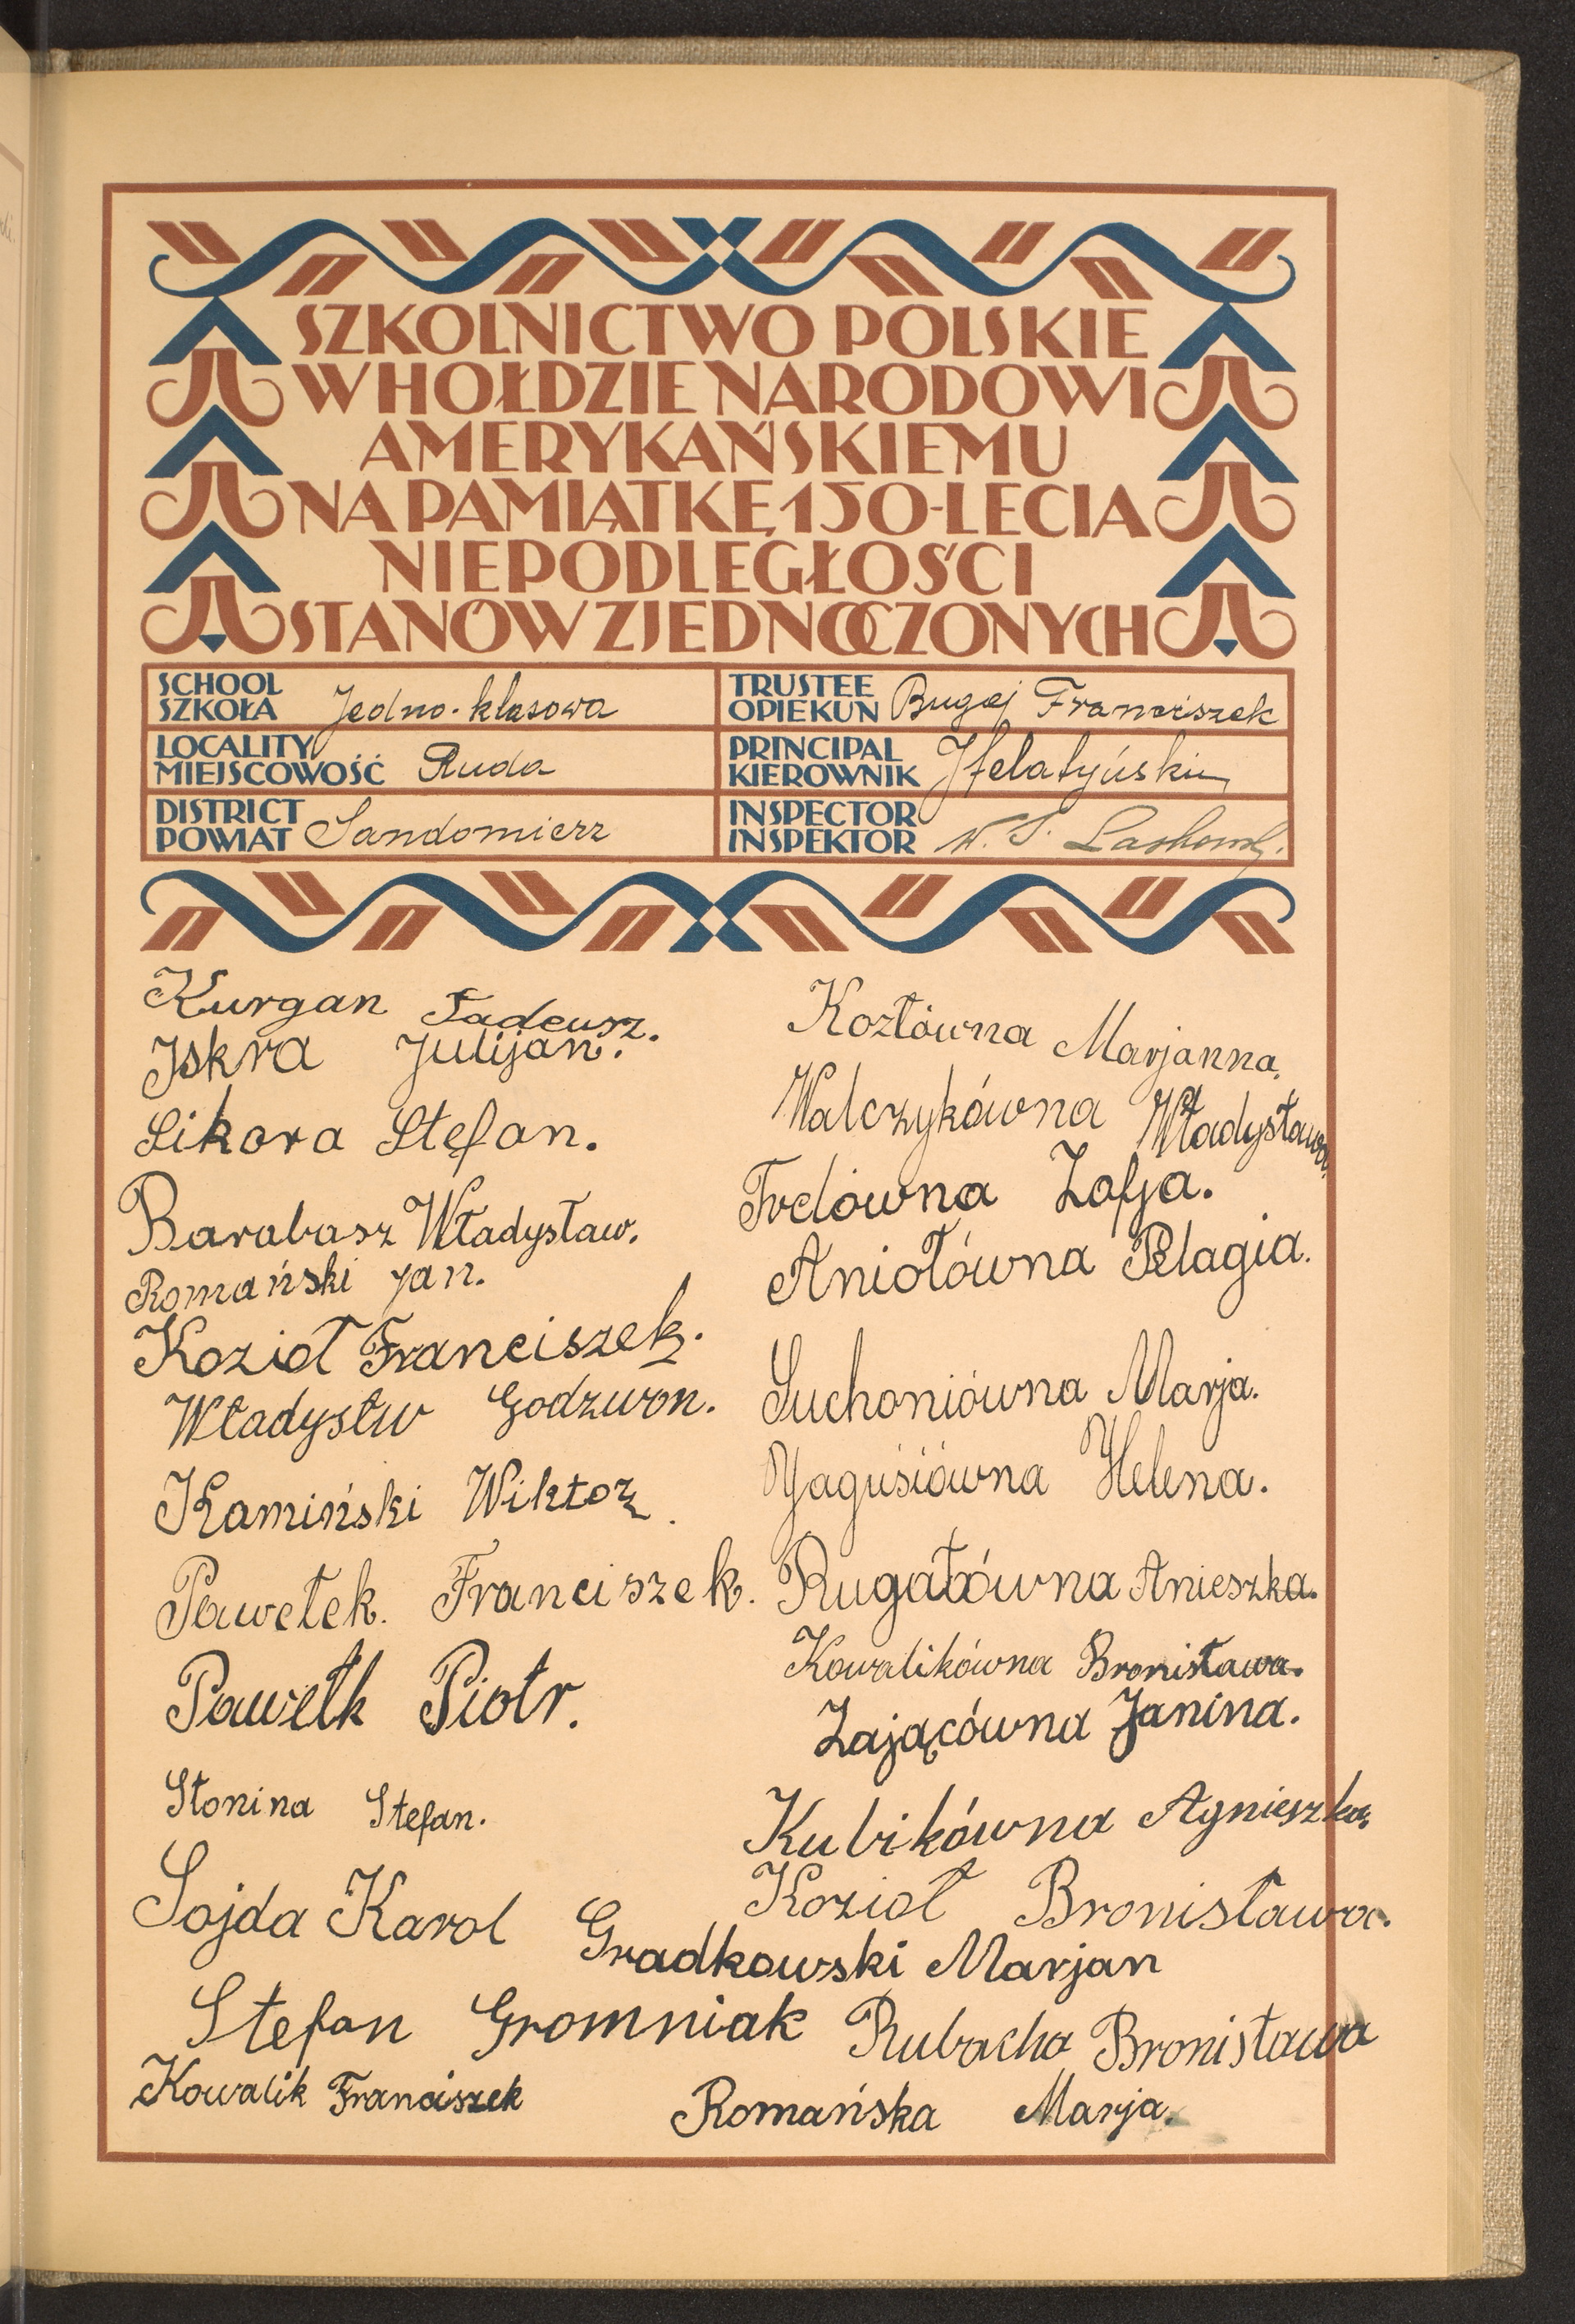 SZKOLNICTWO POLSKIE
W HOŁDZIE NARODOWI
AMERYKAŃSKIEMU
NA PAMIĄTKĘ 150-LECIA
NIEPODLEGŁOŚCI
STANÓW ZJEDNOCZONYCH
SCHOOL
SZKOŁA Jedno-klasowa
TRUSTEE
OPIEKUN Bugaj Franciszek
LOCALITY
MIEJSCOWOŚĆ Ruda
PRINCIPAL
KIEROWNIK
DISTRICT
POWIAT Sandomierz
INSPECTOR
INSPEKTOR W. S.
Kurgan Tadeusz.
Iskra Julijan.
Sikora Stefan.
Barabasz Władysław.
Romański Jan.
Kozioł Franciszek.
Władystw Godzwon.
Kamiński Wiktor.
Pawełek. Franciszek.
Pawełk Piotr.
Słonina Stefan.
Sojda Karol
Stefan Gromniak
Kowalik Franciszek
Kozłówna Marjanna.
Walczykówna Władysława.
Zofja.
Aniołówna Pelagia.
Suchoniówna Marja.
Yagusiówna Helena.
Rugałówna Anieszka.
Kowalikówna Bronisława.
Zającówna Janina.
Kubikówna Agnieszka.
Kozioł Bronisława.
Gradkowski Marjan
Rubacha Bronisława
Romańska Marja.